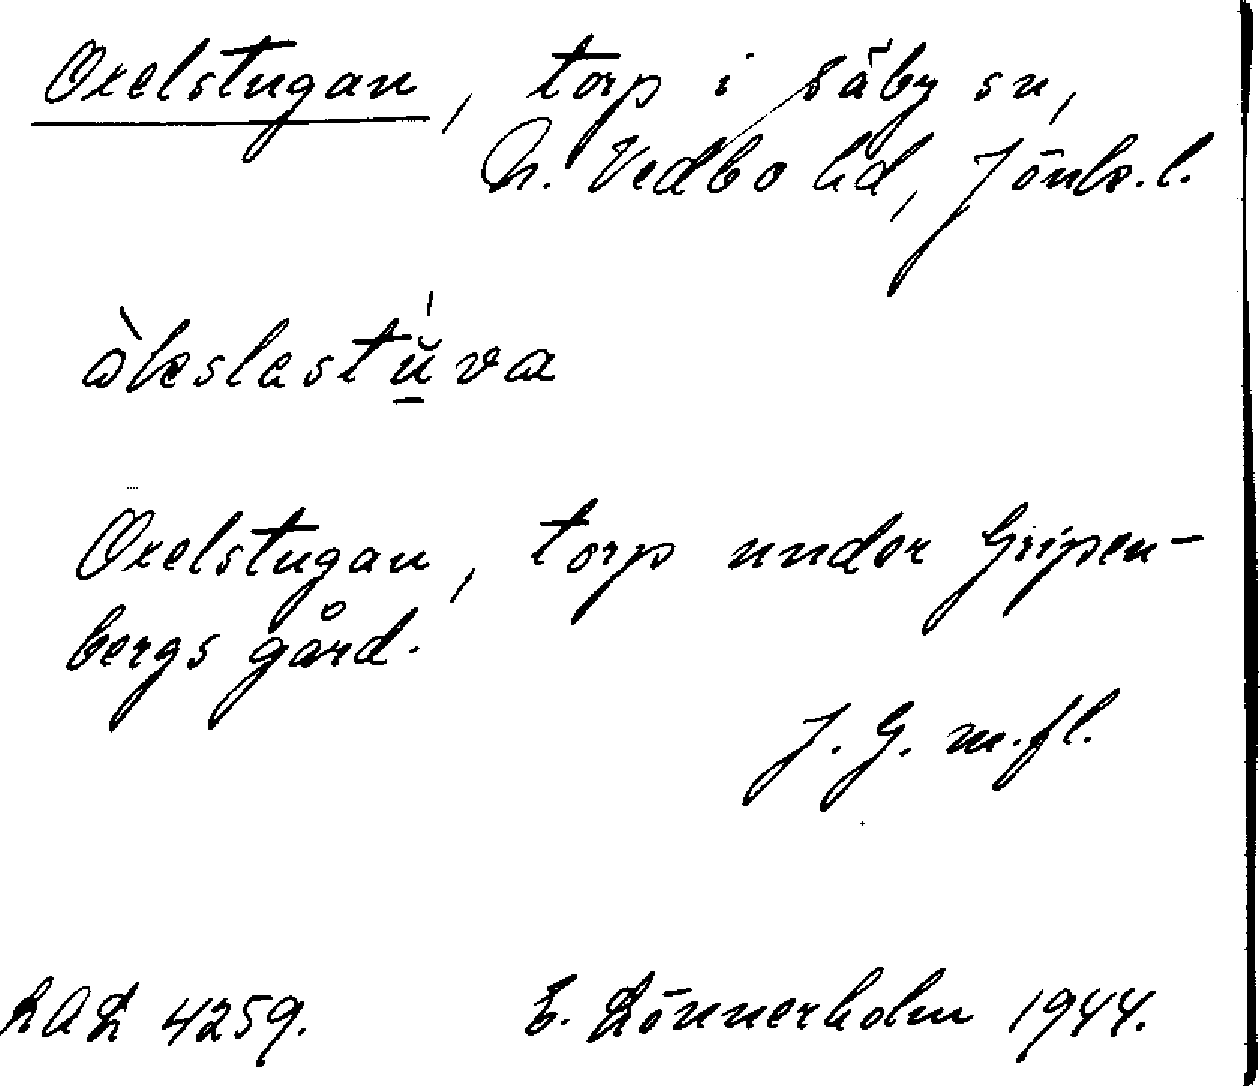 Oxelstugan, torp i Säby sn,
N. Vedbo hd, Jönk.l.
òkslastu̠̇va
Oxelstugan, torp under Gripen-
bergs gård.
J. G. m.fl.
LAL 4259. E. Lönnerholm 1944.